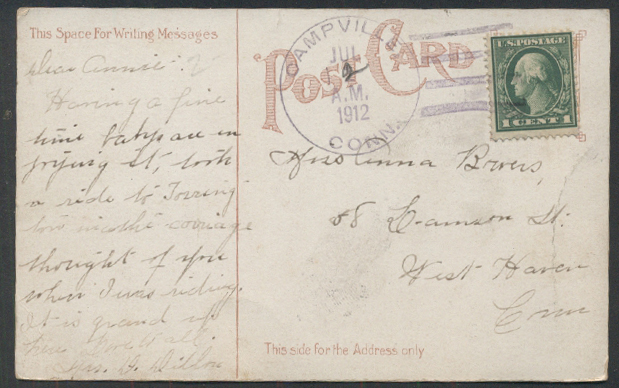 This Space For Writing Messages
Dear Annie:
Having a fine
time babys are en
joying it, took
a ride to Torring
ton in the carriage
thought of you
when I was riding.
It is grand up
here Love to all.
Mrs. Dillon
POST CARD
CAMPVILLE
JUL
2
A.M.
1912
CONN.
U.S. POSTAGE
1 CENT 1
Miss Anna
St.
West Haven
Conn
This side for the Address only